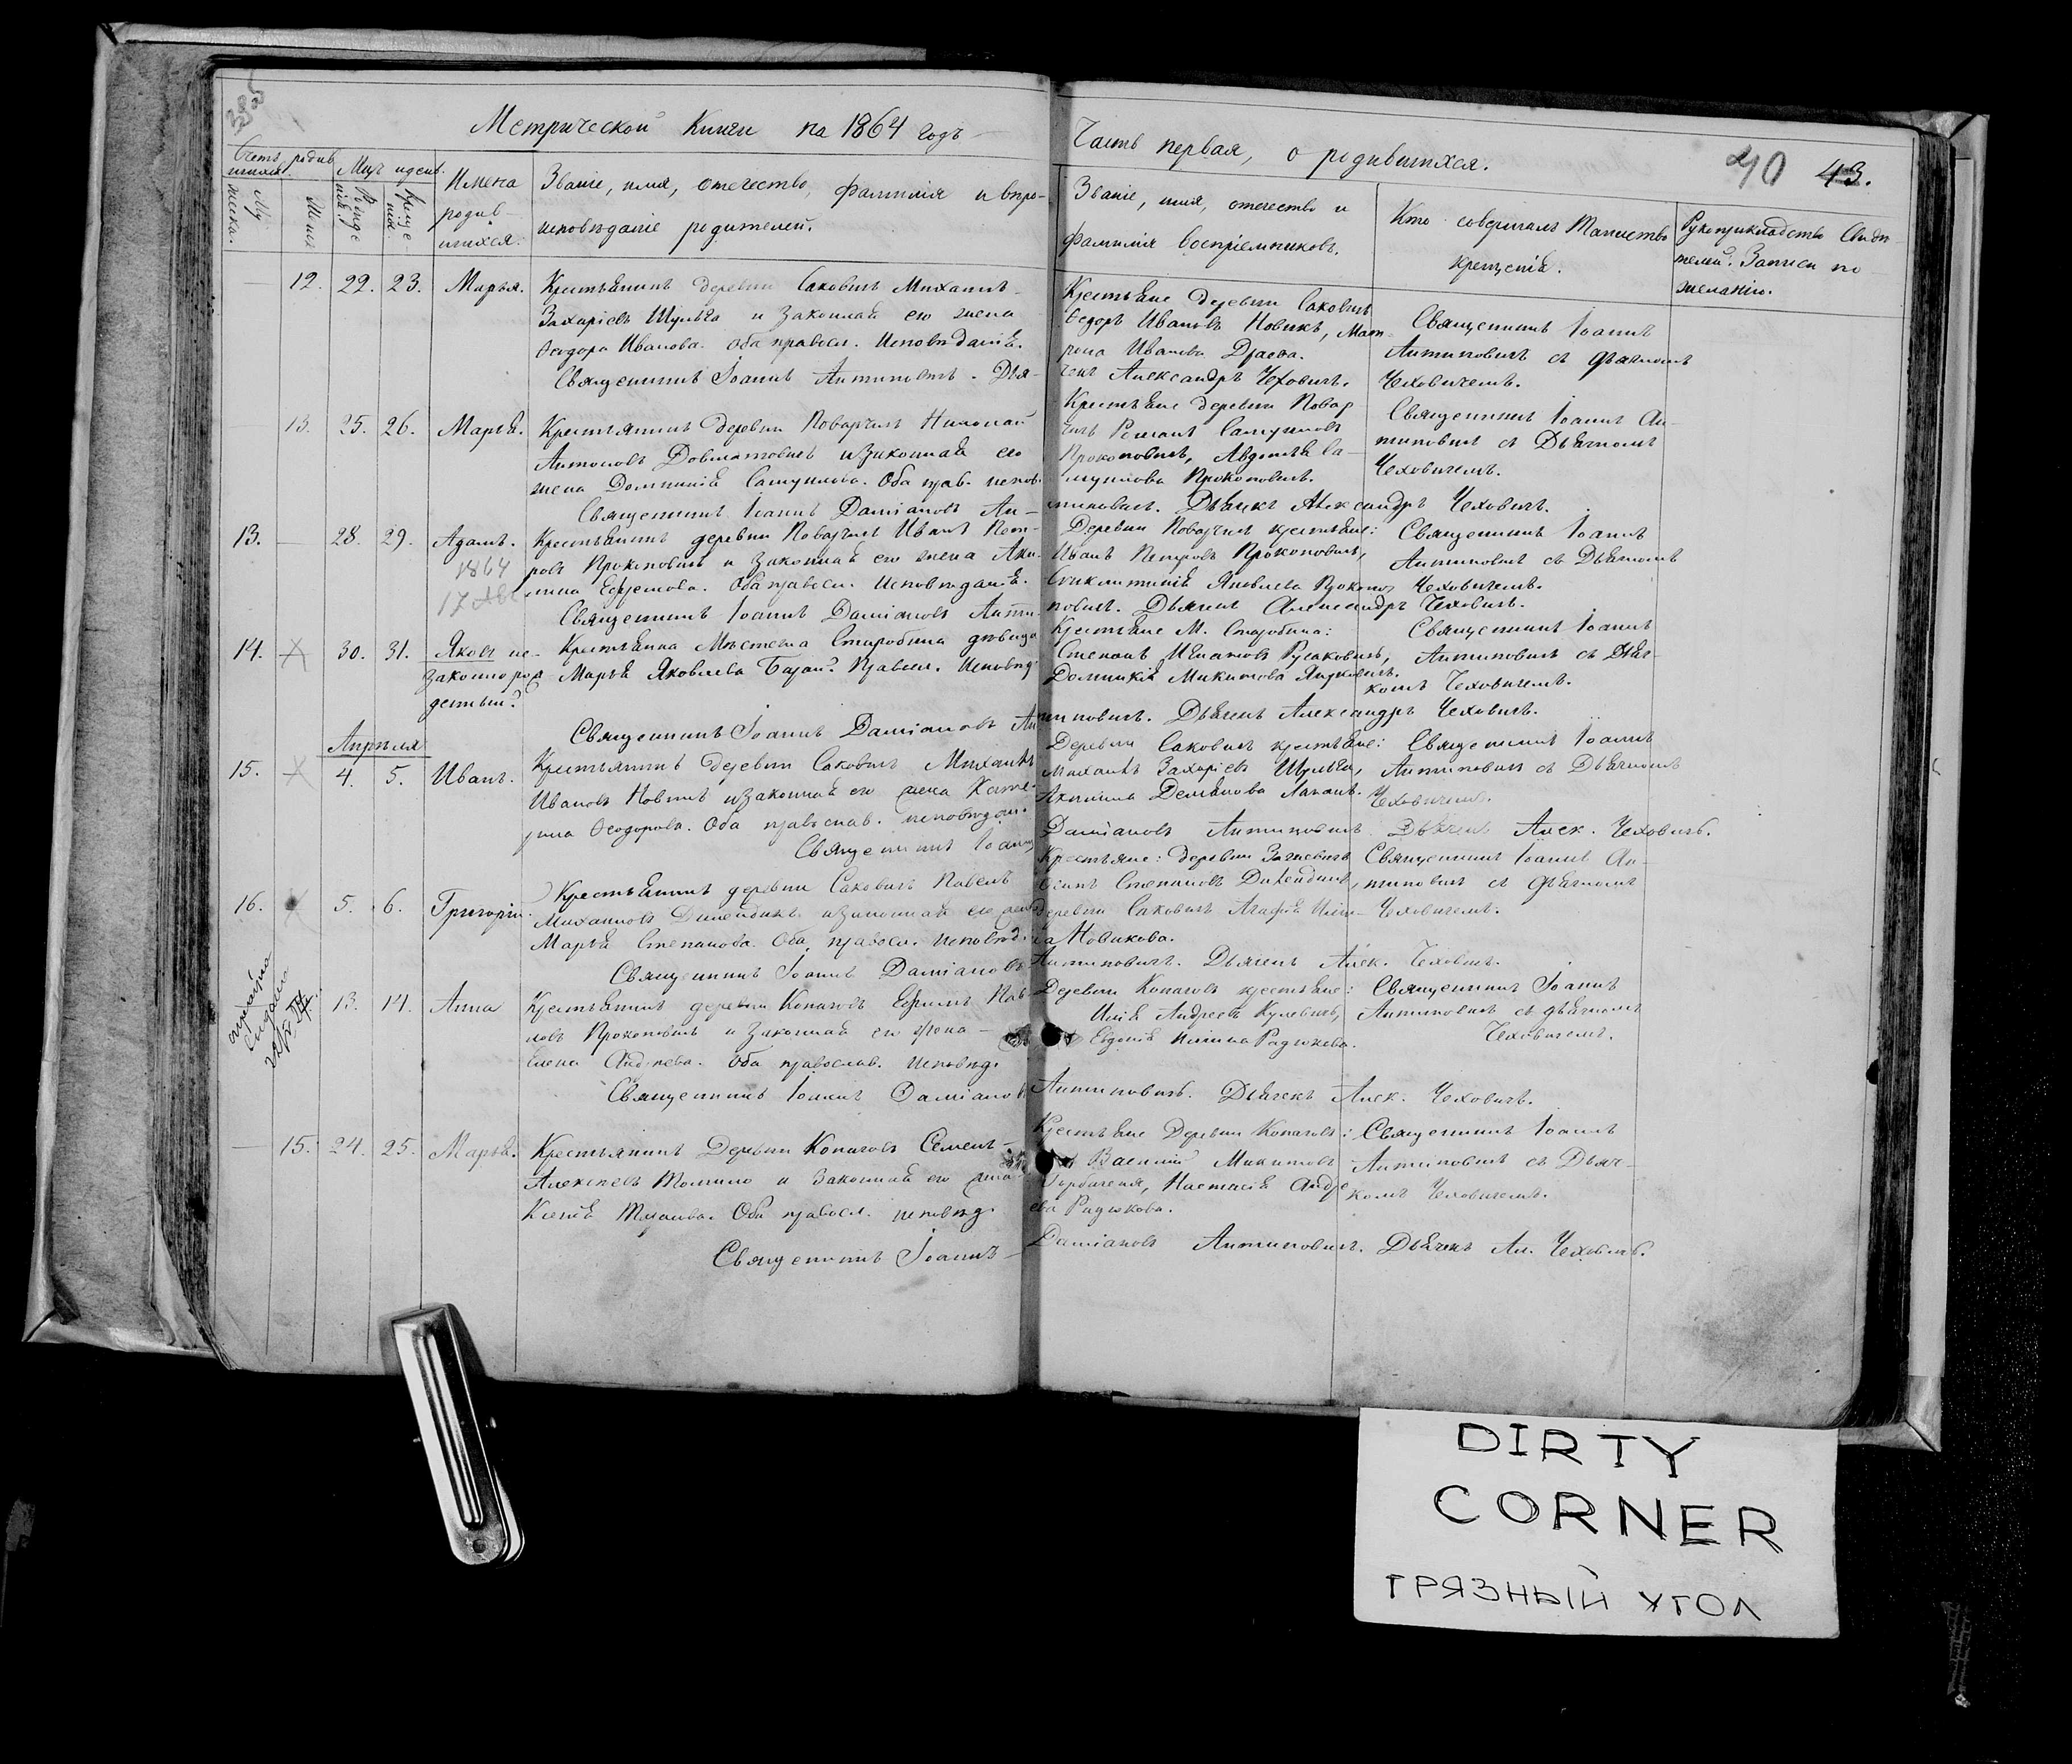 Метрической Книги на 1864 годъ
Часть первая, о родившихся.
40 43.
Счетъ родившихся.
Мужеска.
Женска
Мцъ и день.
Рожденія.
Крещенія.
Имена родившихся.
Званіе, имя, отечество, фамилія и вѣроисповѣданіе родителей.
Званіе, имя, отечество и фамилія воспріемниковъ.
Кто совершалъ Таинство крещенія.
Рукоприкладство свидѣтелей. Записи по желанію.
12. 22. 23. Марья.
Крестьянинъ деревни Саковичъ Михаилъ
Захаріевъ Шульга и законная его жена
Ѳеодора Иванова. Оба правосл. Исповѣданія.
Священникъ Іоаннъ Антиповичъ. Дья-
Крестьяне деревни Саковичъ
Ѳедоръ Ивановъ Новикъ, Мат-
рона Иванова
чекъ Александръ Чеховичъ.
Священникъ Іоаннъ
Антиповичъ съ дьячкомъ
Чеховичемъ.
13. 25. 26. Марья.
Крестьянинъ деревни Поварчичъ Николай
Антоновъ Довматовичъ и законная его
жена Домникія Самуилова. Оба прав. испов.
Священникъ Іоаннъ Даміановъ Ан-
Крестьяне деревни Повар
чичъ Романъ Самуиловъ
Прокоповичъ, Авдотья Са-
муилова Прокоповичъ.
типовичъ. Дьячекъ Александръ Чеховичъ.
Священникъ Іоаннъ Ан-
типовичъ съ Дьячкомъ
Чеховичемъ.
13. 28. 29. Адамъ.
1864
Крестьянинъ деревни Поварчичъ Иванъ Пет-
ровъ Прокоповичъ и законная его жена Аку-
лина Ефремова. Оба правосл. Исповѣданія.
Священникъ Іоаннъ Даміановъ Анти-
Деревни Поварчичъ крестьяне:
Иванъ Петровъ Прокоповичъ,
Синклитикія Яковлева Прокопо
повичъ. Дьячекъ Александръ Чеховичъ.
Священникъ Іоаннъ
Антиповичъ съ Дьячкомъ
Чеховичемъ.
14. 30. 31. Яковъ не-
законнорож
денный
Крестьянка Мѣстечка Старобина дѣвица
Марья Яковлева Баран. Правосл. Исповѣд.
Священникъ Іоаннъ Даміановъ Ан
Крестьяне М. Старобина:
Степанъ Игнатовъ Русаковичъ,
Домникія Микитова
типовичъ. Дьячекъ Александръ Чеховичъ.
Священникъ Іоаннъ
Антиповичъ съ Дьяч-
комъ Чеховичемъ.
Апрѣля
15. 4. 5. Иванъ.
Крестьянинъ деревни Саковичъ Михаилъ
Ивановъ Новикъ и законная его жена Кате-
рина Ѳеодорова. Оба православ. исповѣдан.
Священникъ Іоаннъ
Деревни Саковичъ крестьяне:
Михаилъ Захаріевъ Шульга,
Акилина Демьянова
Даміановъ Антиповичъ. Дьячекъ Алек. Чеховичъ.
Священникъ Іоаннъ
Антиповичъ съ Дьячкомъ
Чеховичемъ.
16. 5. 6. Григорій.
Крестьянинъ деревни Саковичъ Павелъ
Михаиловъ и законная его жена
Марья Степанова. Оба правосл. исповѣд.
Священникъ Іоаннъ Даміановъ
Крестьяне: деревни
Степановъ
деревни Саковичъ Агафія
Новикова.
Антиповичъ. Дьячекъ Алек. Чеховичъ.
Священникъ Іоаннъ Ан-
типовичъ съ дьячкомъ
Чеховичемъ.
13. 14. Анна
Крестьянинъ деревни Копачовъ Ефимъ Пав-
ловъ Прокоповичъ и законная его жена
Елена Андреева. Оба православ. исповѣд.
Священникъ Іоаннъ Даміановъ
Деревни Копачовъ крестьяне:
Илія Андреевъ Кулевичъ,
Евдокія Ильина Радюкова.
Антиповичъ. Дьячекъ Алек. Чеховичъ.
Священникъ Іоаннъ
Антиповичъ съ дьячкомъ
Чеховичемъ.
15. 24. 25. Марья.
Крестьянинъ Деревни Копачовъ Семенъ
Алексѣевъ и законная его жена
Ксенія. Оба правосл. исповѣд.
Священникъ Іоаннъ
Крестьяне Деревни Копачовъ:
Василій Микитовъ
Горбаченя, Настасія Андре
ева Радюкова.
Даміановъ Антиповичъ. Дьячекъ Ал. Чеховичъ.
Священникъ Іоаннъ
Антиповичъ съ Дьяч-
комъ Чеховичемъ.
DIRTY
CORNER
ГРЯЗНЫЙ УГОЛ